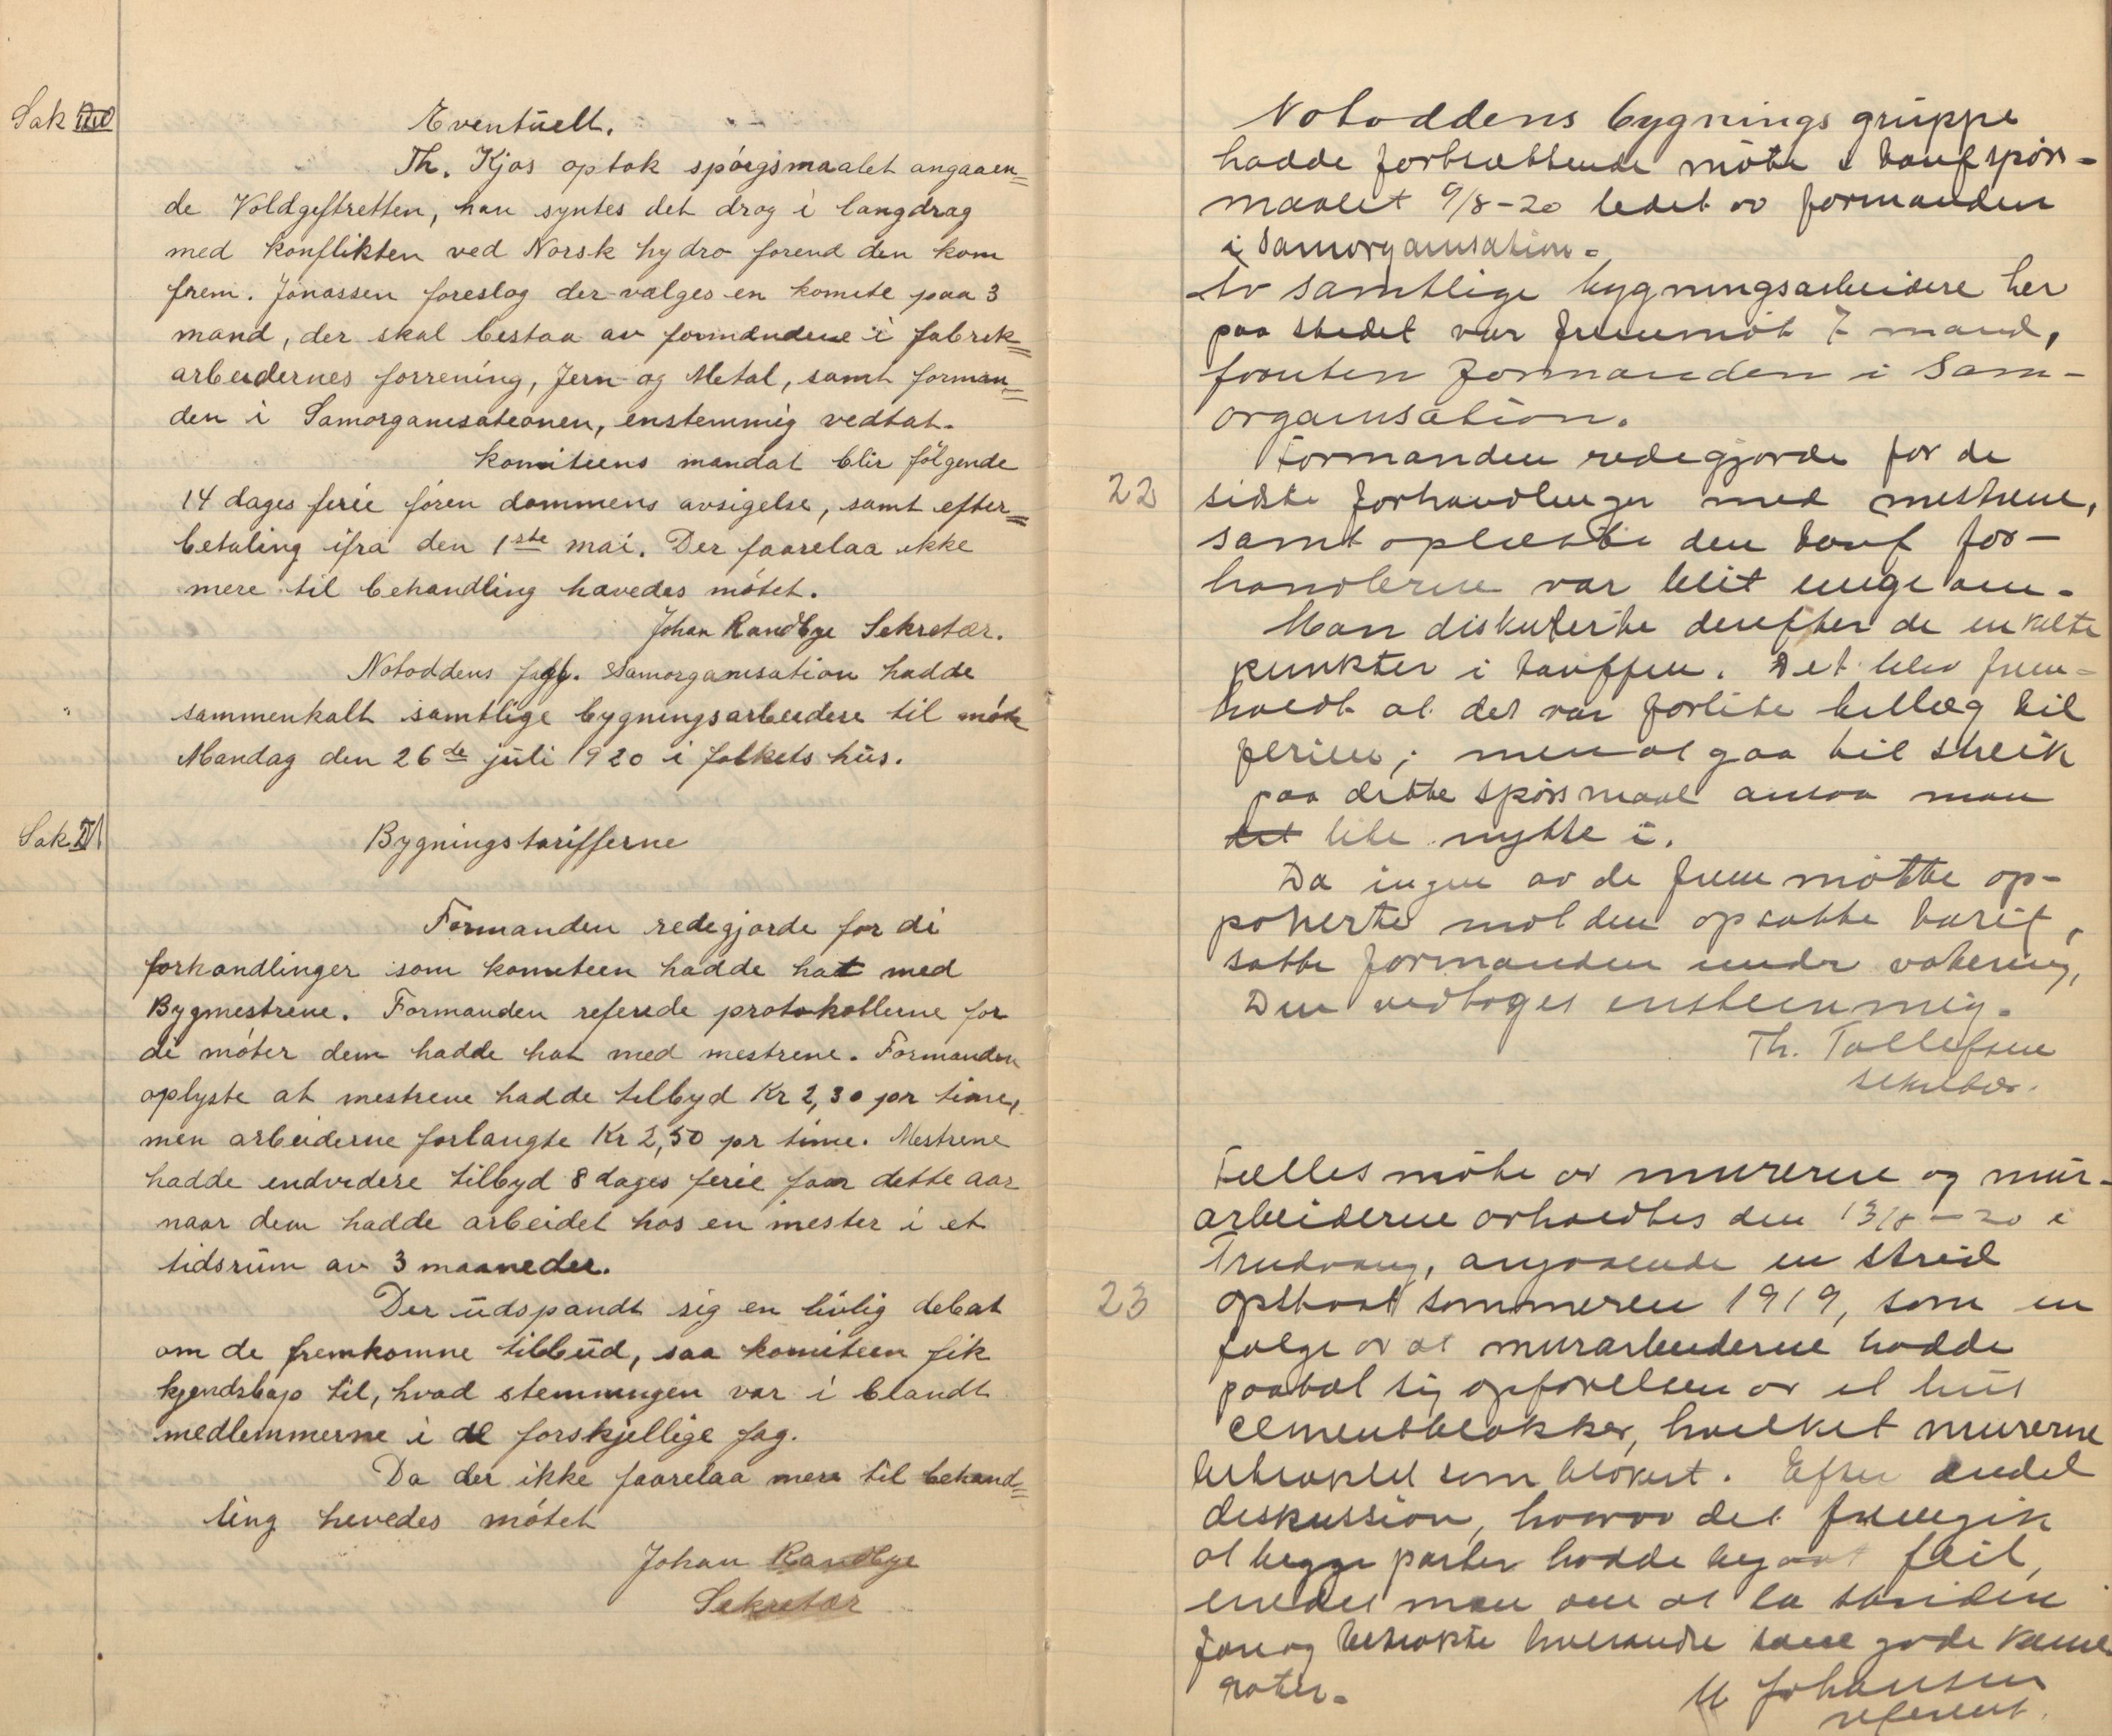 Sak
Eventuelt.
Th. Kjos optok spørgsmaalet angaaen=
de Voldgiftretten, han syntes det drog i langdrag
med konflikten ved Norsk hydro forend den kom
frem. Jonassen foreslog der vælges en komite paa 3
mand, der skal bestaa av formændene i fabrik=
arbeidernes forrening, Jern og Metal, samt forman=
den i Samorganisationen, enstemmig vedtat.
komitiens mandat blir følgende
14 dages ferie føren dommens avsigelse, samt efter=
betaling ifra den 1ste mai. Der faarelaa ikke
mere til behandling hævedes møtet.
Johan Randbye Sekretær.
Notoddens fagl. Samorganisation hadde
sammenkalt samtlige bygningsarbeidere til møte
Mandag den 26de juli 1920 i folkets hus.
Sak I
Bygningstarifferne
Formanden redegjorde for di
forhandlinger som komiteen hadde hat med
Bygmestrene. Formanden referede protokollerne for
di møter dem hadde hat med mestrene. Formanden
oplyste at mestrene hadde tilbyd Kr 2,30 pr time,
men arbeiderne forlangte Kr 2,50 pr time. Mestrene
hadde endvidere tilbyd 8 dages ferie faar dette aar
naar dem hadde arbeidet hos en mester i et
tidsrum av 3 maaneder.
Der udspandt sig en livlig debat
om de fremkomne tilbud, saa komiteen fik
kjendskap til, hvad stemningen var i blandt
medlemmerne i de forskjellige fag.
Da der ikke faarelaa mere til behand=
ling hevedes møtet
Johan Randbye
Sekretær
Notoddens bygnings gruppe
hadde fortsættende møte i tarifspørs-
maalet 9/8-20 ledet av formanden
i Samorganisation.
Av samtlige bygningsarbeidere her
paa stedet var fremmøt 7 mand,
foruten formanden i Sam-
organisation.
Formanden redegjorde for de
22 sidste forhandlinger med mestrene,
samt oplæste den tarif for-
handlerne var blit enige om.
Man diskuterte derefter de enkelte
punkter i tariffen. Det blev frem-
holdt at det var forlite tillæg til
ferien; men at gaa til streik
paa dette spørsmaal ansaa man
det lite nytte i.
Da ingen av de fremmøtte op-
ponerte mot den opsatte tarif,
satte formanden under votering,
Den vedtoges ensteemmig.
Th. Tollefsen
sekretær.
Fællesmøte av murerne og mur-
arbeiderne avholdtes den 13/8-20 i
Trudvang, angaaende en streid
23 opstaat sommeren 1919, som en
følge av at murarbeiderne hadde
paatat sig opførelsen av et hus
cementblokker, hvilket murerne
betraktet som blokert. Efter endel
diskussion, hvorav det fremgik
at begge parter hadde begaat feil,
enedes man om at la striden
fare og betrakte hverandre som gode kame
rater.
M Johansen
referent.